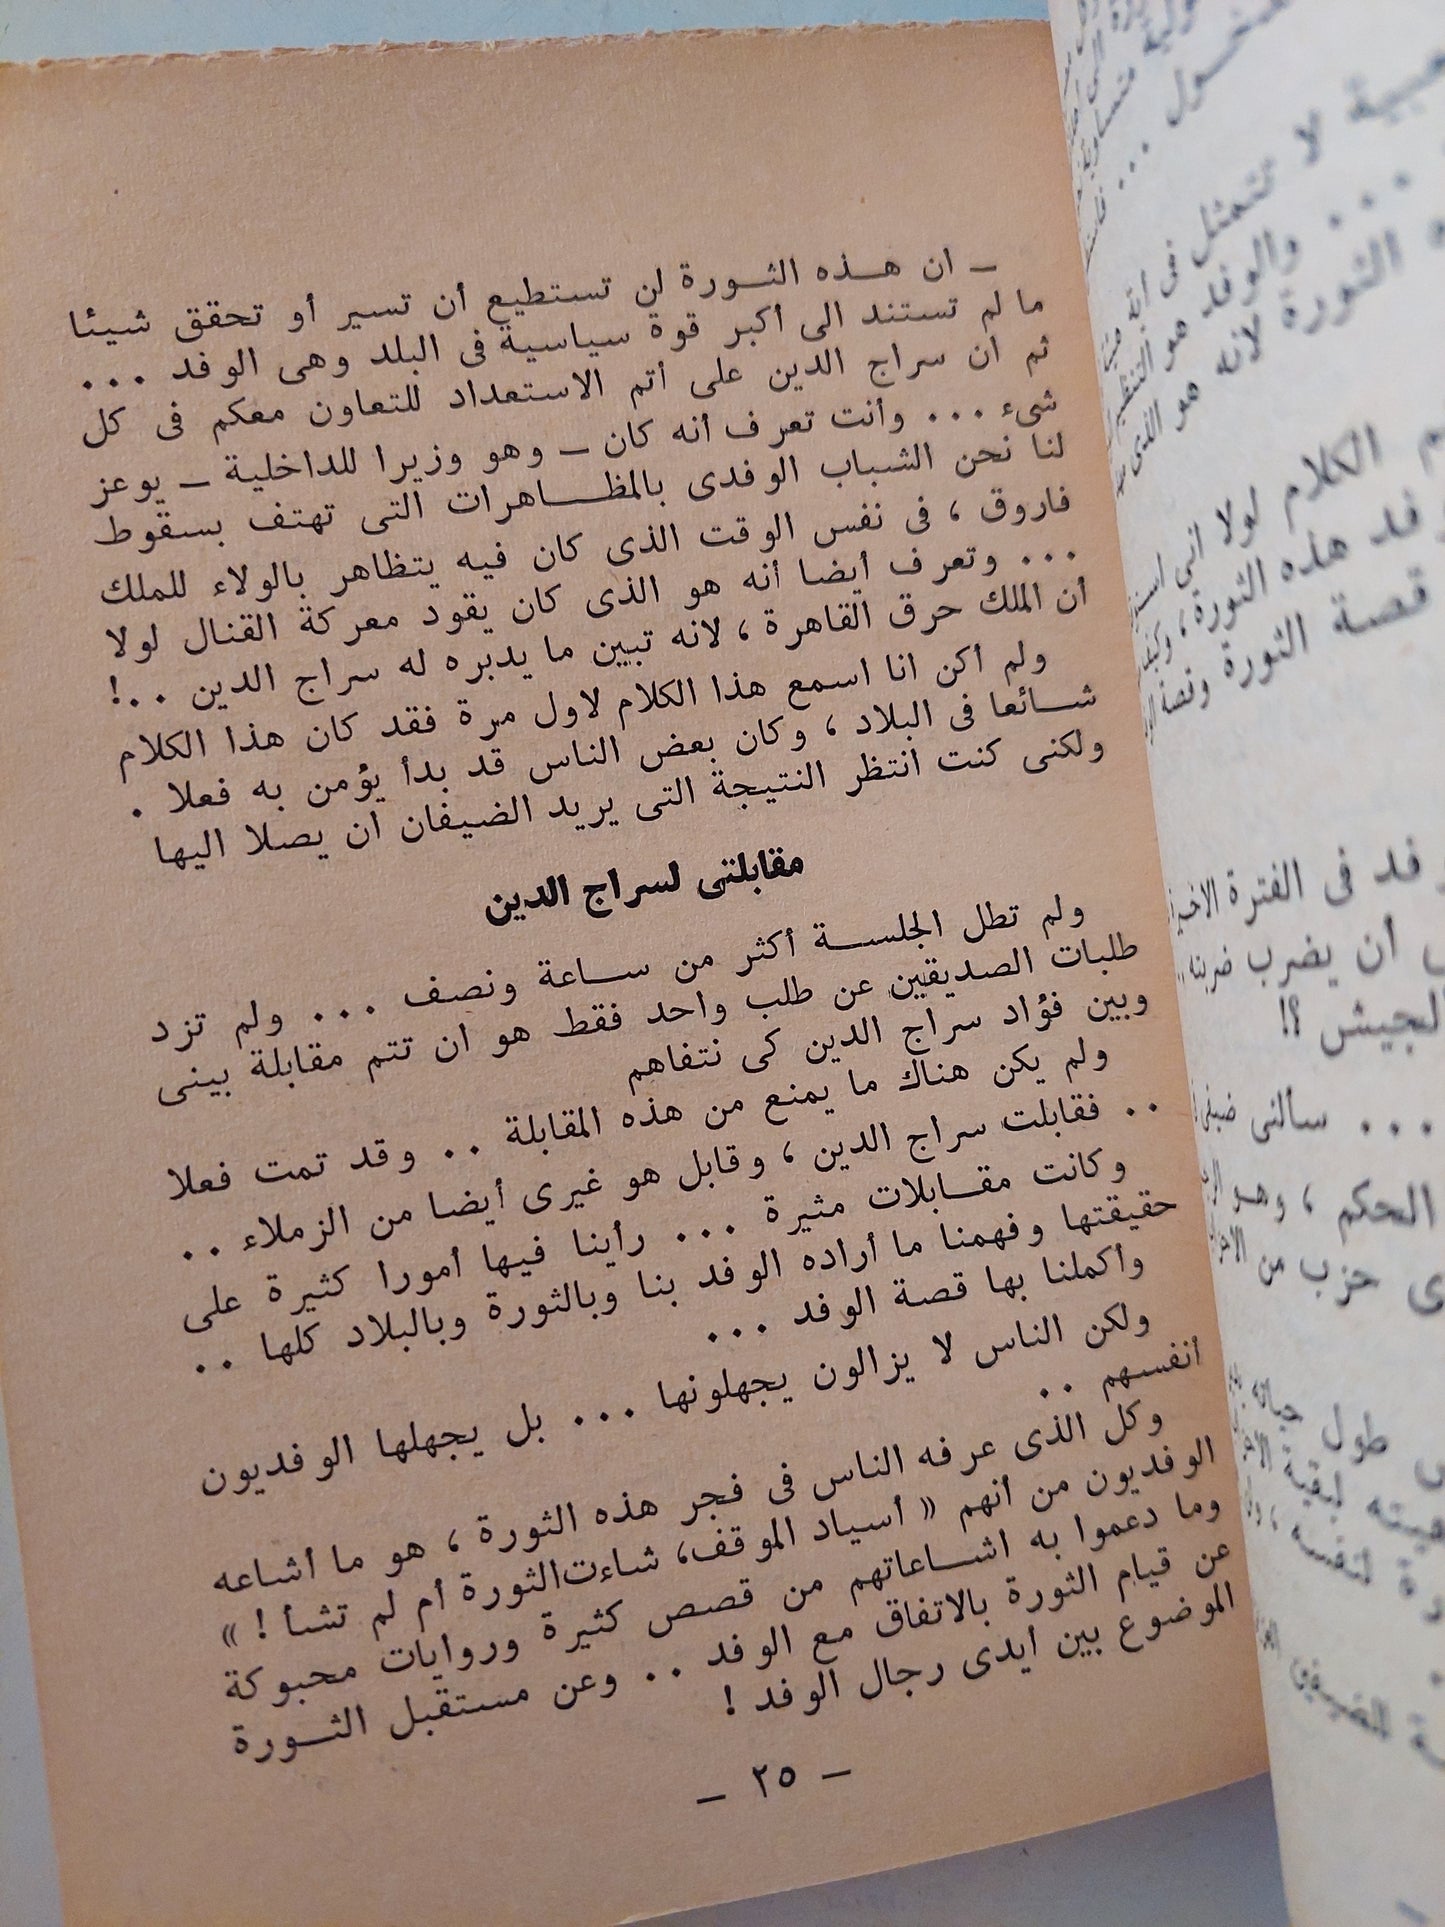 ـ ان هـــذه الثـــورة لن تستطيع أن تسير أو تحقق شيئا
ما لم تستند الى أكبر قوة سياسية فى البلد وهى الوفد ...
ثم ان سراج الدين على أتم الاستعداد للتعاون معكم فى كل
شىء ... وأنت تعرف أنه كان ـ وهو وزيرا للداخلية ـ يوعز
لنا نحن الشباب الوفدى بالمظـــاهرات التى تهتف بسقوط
فاروق ، فى نفس الوقت الذى كان فيه يتظاهر بالولاء للملك
... وتعرف أيضا أنه هو الذى كان يقود معركة القنال لولا
أن الملك حرق القاهرة ، لانه تبين ما يدبره له سراج الدين ..!
ولم أكن انا اسمع هذا الكلام لاول مرة فقد كان هذا الكلام
شـــائعا فى البلاد ، وكان بعض الناس قد بدأ يؤمن به فعلا .
ولكنى كنت انتظر النتيجة التى يريد الضيفان ان يصلا اليها
مقابلتى لسراج الدين
ولم تطل الجلســـة أكثر من ســـاعة ونصف ... ولم تزد
طلبات الصديقين عن طلب واحد فقط هو ان تتم مقابلة بينى
وبين فؤاد سراج الدين كى نتفاهم
ولم يكن هناك ما يمنع من هذه المقابلة .. وقد تمت فعلا
.. فقابلت سراج الدين ، وقابل هو غيرى أيضا من الزملاء ..
وكانت مقـــابلات مثيرة ... رأينا فيها أمورا كثيرة على
حقيقتها وفهمنا ما أراده الوفد بنا وبالثورة وبالبلاد كلها ..
وأكملنا بها قصة الوفد ...
ولكن الناس لا يزالون يجهلونها ... بل يجهلها الوفديون
أنفسهم ..
وكل الذى عرفه الناس فى فجر هذه الثورة ، هو ما أشاعه
الوفديون من أنهم « أسياد الموقف، شاءت الثورة أم لم تشأ ! »
وما دعموا به اشـــاعاتهم من قصص كثيرة وروايات محبوكة
عن قيام الثورة بالاتفاق مع الوفد .. وعن مستقبل الثـــورة
الموضوع بين أيدى رجال الوفد !
ـ ٢٥ ـ
لا تتمثل فى
... والوفد هو
الثورة لانه هو الذى
الكلام لولا انى
هذه الثورة ،
قصة الثورة
فى الفترة
أن يضرب ضربته ..
الجيش ؟!
... سألنى
الحكم ، وهو
حزب من
طول حياته
لنفسه ،